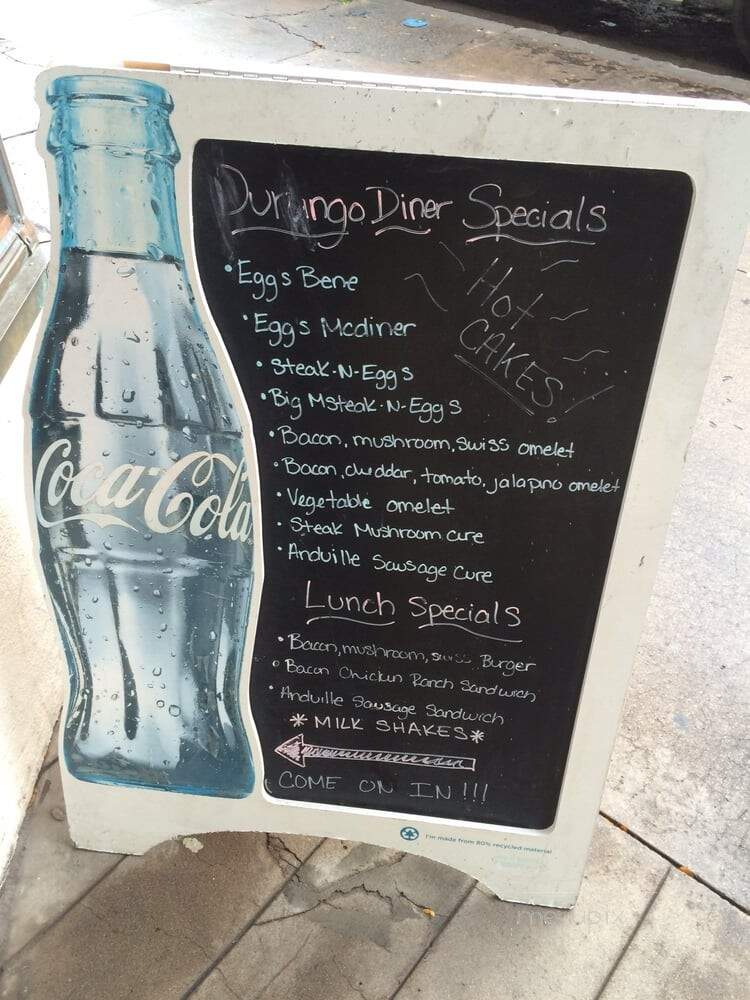 Durango Diner Specials
• Eggs Bene
Hot
CAKES!
• Eggs Mcdiner
• Steak-N-Eggs
• Big Msteak-N-Eggs
• Bacon, mushroom, swiss omelet
• Bacon, cheddar, tomato, jalapino omelet
• Vegetable omelet
• Steak Mushroom cure
• Anduille Sausage Cure
Lunch Specials
• Bacon, mushroom, swiss Burger
• Bacon Chicken Ranch Sandwich
• Anduille Sausage Sandwich
*MILK SHAKES*
COME ON IN!!!
Coca-Cola
I'm made from 80% recycled material